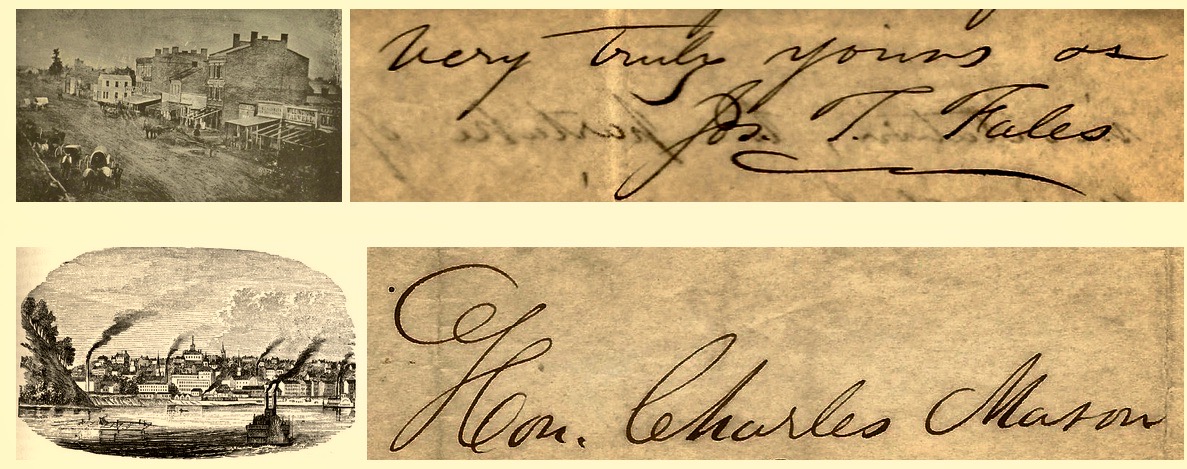 very truly yours as
Jos. T. Fales
Hon. Charles Mason